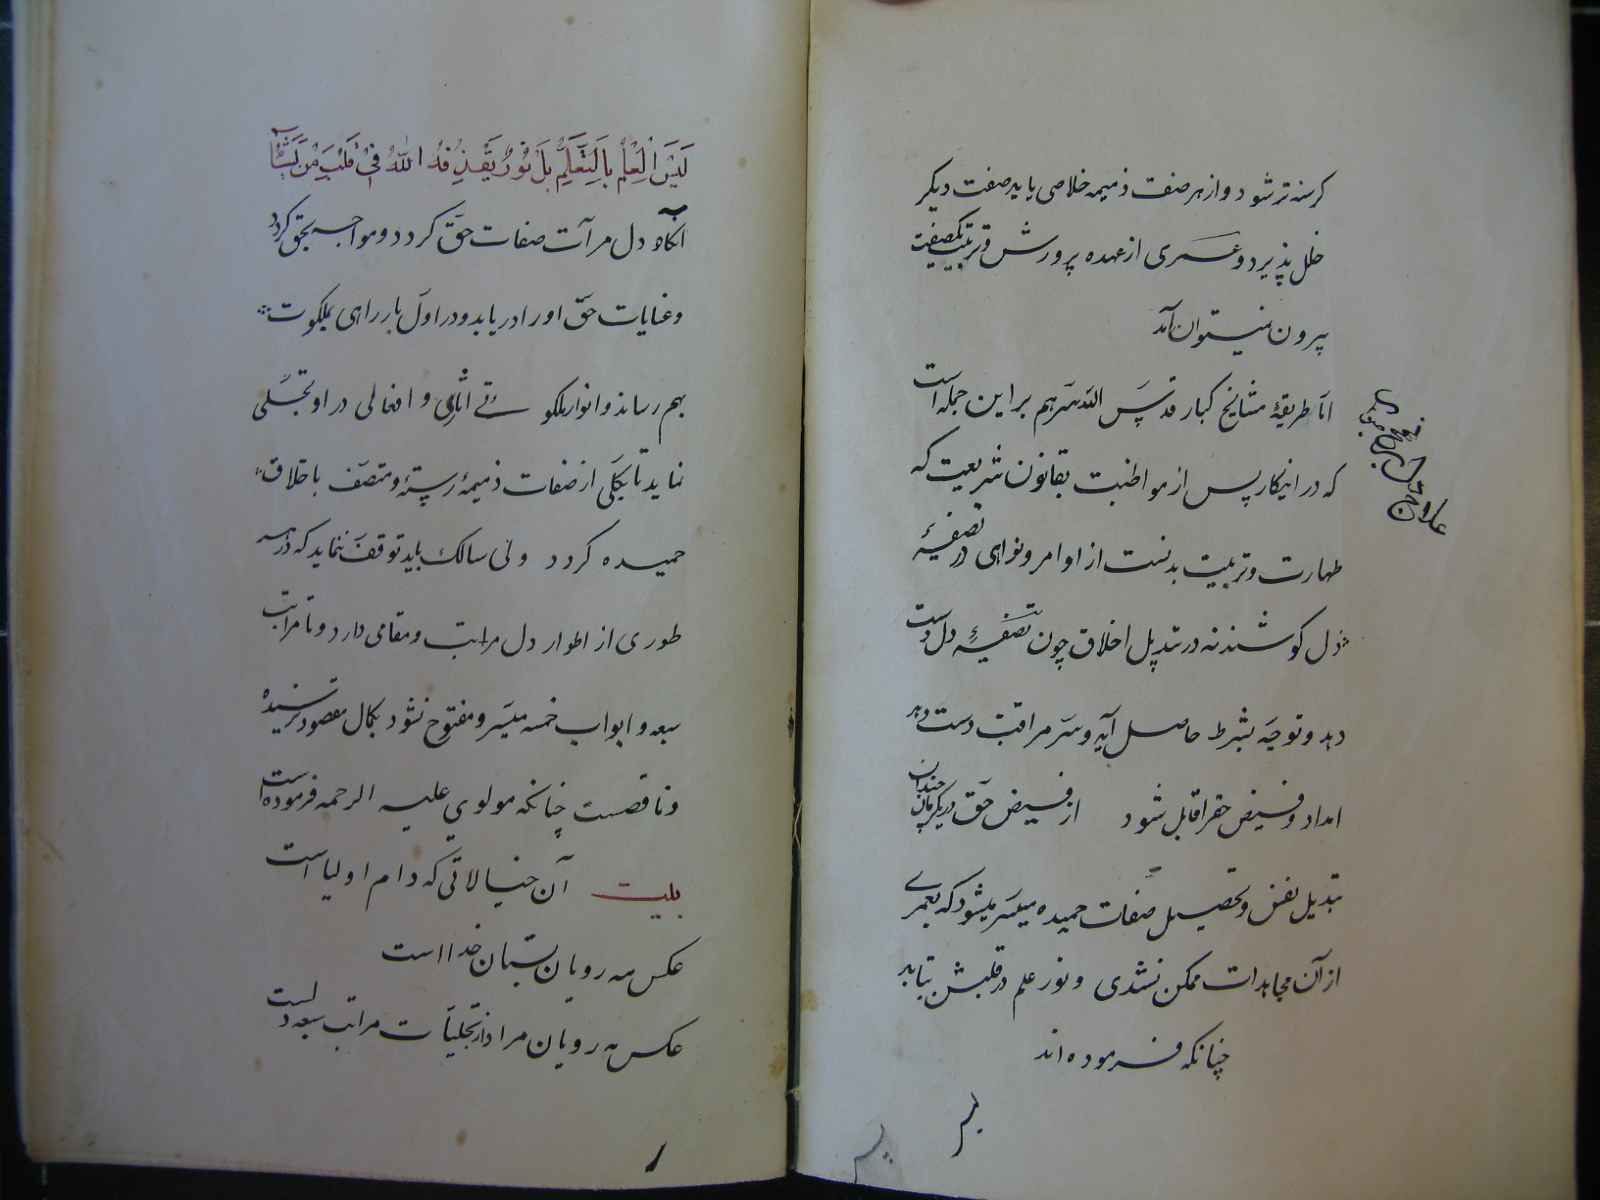 کرسنه تر شود و از هر صفت ذمیمه خلاصی یابد صفت دیکر
خلل پذیرد و عمری از عهده پرورش و تربیت یکصفت
بیرون نمیتوان آمد
امّا طریقهٔ مشایخ کبار قدّس الله سرّهم بر این جمله است
که در اینکار پس از مواظبت بقانون شریعت که
طهارت و تربیت بدنست از اوامر و نواهی در تصفیهٔ
دل کوشند نه در تبدیل اخلاق چون تصفیهٔ دل دست
دهد و توجّه بشرط حاصل آید و سرّ مراقبت دست دهد
امداد و فیض حق را قابل شود از فیض حقّ در یکزمان چندان
تبدیل نفس و تحصیل صفات حمیده میسّر میشود که بعمری
از آن مجاهدات ممکن نشدی و نور علم در قلبش بتابد
چنانکه فرموده اند
لَیْسَ الْعِلْمُ بِالتَّعَلُّمِ بَلْ نُورٌ یَقْذِفُهُ اللّهُ فِی قَلْبِ مَنْ یَشَآءُ
آنکاه دل مرآت صفات حقّ کردد و مواجه بحق کردد
و عنایات حقّ او را دریابد و در اوّل بار راهی بملکوت
بهم رساند و انوار ملکوتی آثاری و افعالی در او تجلّی
نماید تا بکلّی از صفات ذمیمهٔ رسته و متصّف باخلاق
حمیده کردد ولی سالک باید توقف ننماید که در هر
طوری از اطوار دل مراتب و مقامی دارد و تا مراتب
سبعه و ابواب خمسه میسّر و مفتوح نشود بکمال مقصود نرسیده
و ناقصست چنانکه مولوی علیه الرحمه فرموده است
بیت آن خیالاتی که دام اولیا است
عکس مه رویان بستان خدا است
عکس مه رویان مراد از تجلیّات مراتب سبعه دلست